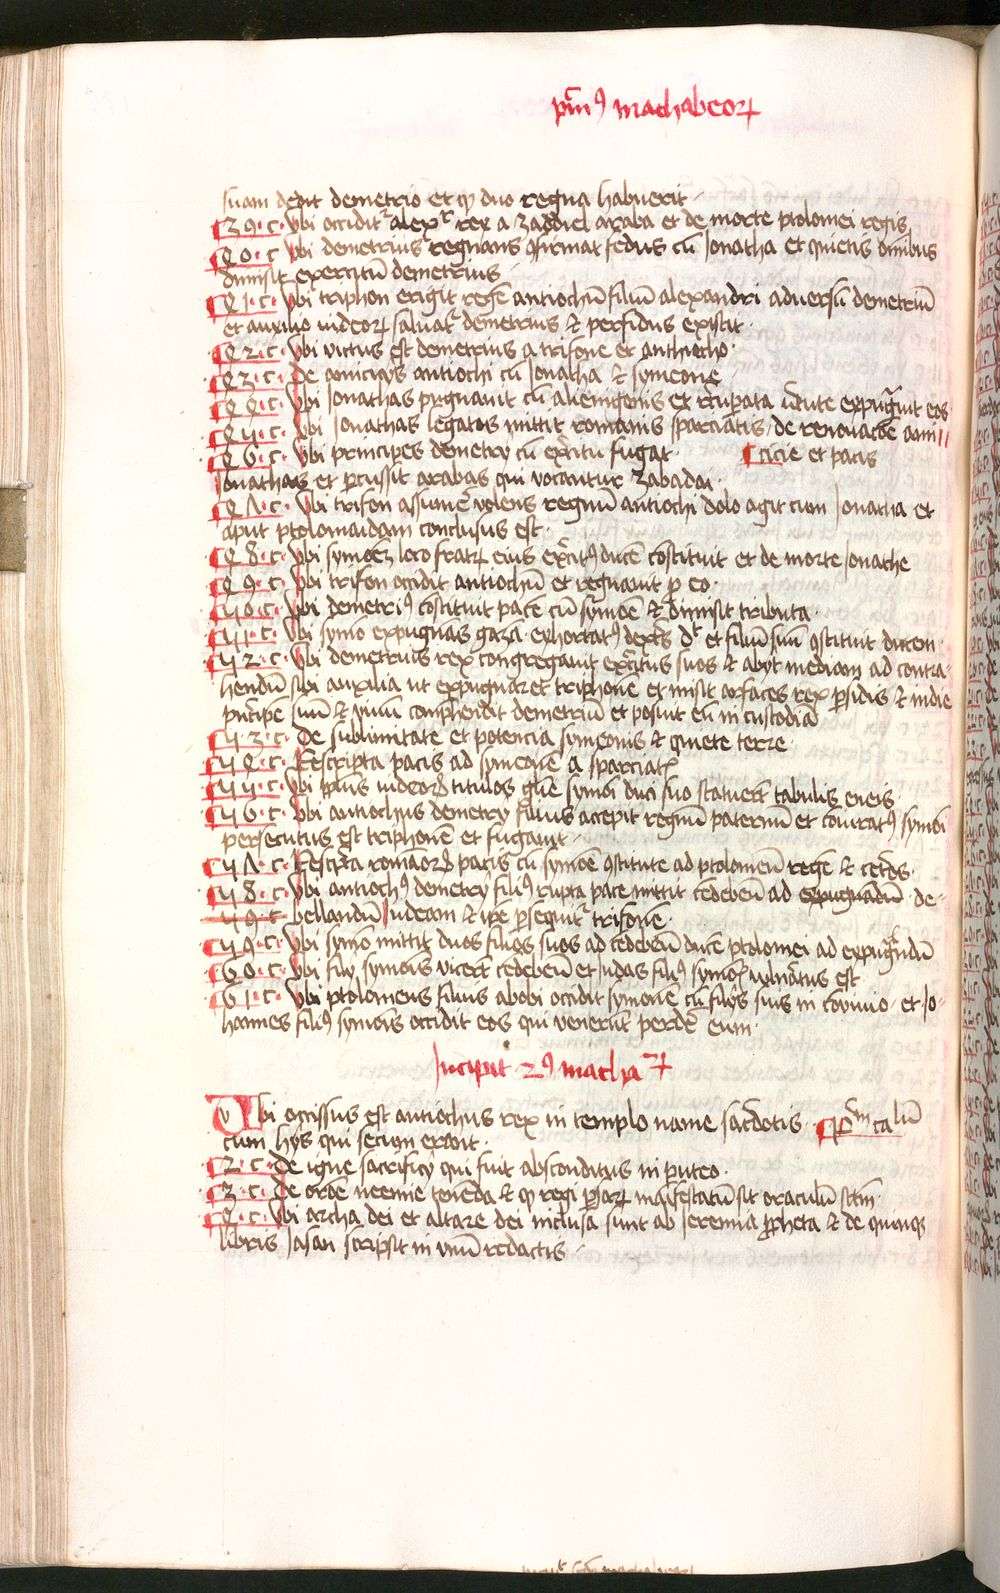 pm̄ꝰ machabeoꝝ
suam dedit demetrio et ꝙ duo regna habuerit
39·c· Vbi occidit᷑ alex᷑ rex a zaddiel araba et de morte ptolomei regis
40·c Vbi demetrius regnans ꝯfirmat fedus cū Jonatha et quietis om̄ibus
dimisit exercitū demetrius
41·c· Vbi triphon erigit regē antiochū filiū alexandri adversū demetriū
et auxilio iudeoꝝ saluat᷑ demetrius & perfidus existit·
42·c· Vbi victus est demetrius a trifone et anthiocho·
43·c· De amicicijs antiochi cū Jonatha & symeone
44·c· Vbi Jonathas pugnauit cū alienigenis et recuperata v̄tute expugnauit eos
45·c· Vbi Jonathas legatos mittit romanis sparciatis / de renouacōe ami
46·c· Vbi principes demetrij cū exercitu fugat· cicie et pacis
Jonathas et percussit arabas qui vocantur zabadai·
47·c· Vbi trifon assumē volens regnum antiochi dolo agit cum Jonatha et
aput ptolomaidam conclusus est·
48·c· Vbi symōem loco fratꝝ eius exc̄itꝰ ducē cōstituit et de morte Jonathe
49·c· Vbi trifon occidit antiochū et regnauit ꝓ eo·
50·c· Vbi demetriꝰ cōstituit pacē cū symōe & dimisit tributa·
51·c· Vbi symō expugnās gazā exhortatꝰ et filiū suū ꝯstituit ducem·
52·c· Vbi demetrius rex congregauit exercitus suos & abijt mediam ad contra-
hendū sibi auxilia ut expugnaret triphonē et misit arfaces rex ꝑsidis & indie
principē suū & viuū comprehendit demetriū et posuit eū in custodiā
53·c· De sublimitate et potencia symeonis & quiete terre·
54·c· Rescripta pacis ad symeonē a sparciatꝭ
55·c· Vbi pplūs iudeoꝝ titulos glīe symōi duci suo statuerūt tabulis eneis·
56·c· Vbi antiochus demetrij filius accepit regnū paternū et coniuratꝰ symōi
persecutus est triphonē et fugauit·
57·c· Rescripta romanoꝝ pacis cū symōe ꝯstitute ad ptolomeū regē & ceteros·
58·c· Vbi antiochꝰ demetrij filiꝰ rupta pace mittit cedebeū ad expugnadū de-
59·c bellandū Judeam & ipe ꝑsequit᷑ trifonē·
59·c· Vbi symō mittit duos filios suos ad cedebeū ducē ptolomei ad expugnādū
60·c· Vbi filij symōis vicerūt cedebeū et Judas filiꝰ symōis vulneratus est
61·c· Vbi ptolomeus filius abobi occidit symonē cū filijs suis in cōviuio · et Jo-
hannes filiꝰ symōis occidit eos qui venerūt perdē eum·
Incipit 2ꝰ machaꝝ
Vbi occissus est antiochus rex in templo name sacerdotis· pm̄ calm̄
cum hijs qui secum erant·
2·c· De igne sacrificij qui fuit absconditus in puteo·
3·c· De orōe neemie tenēda & ꝙ regi ꝑsaꝝ manifestatū sit oraculū
4·c· Vbi archa dei et altare dei inclusa sunt ab Jeremia ꝓpheta & de quinqꝫ
libris Jasan scripsit in vnū redactis·